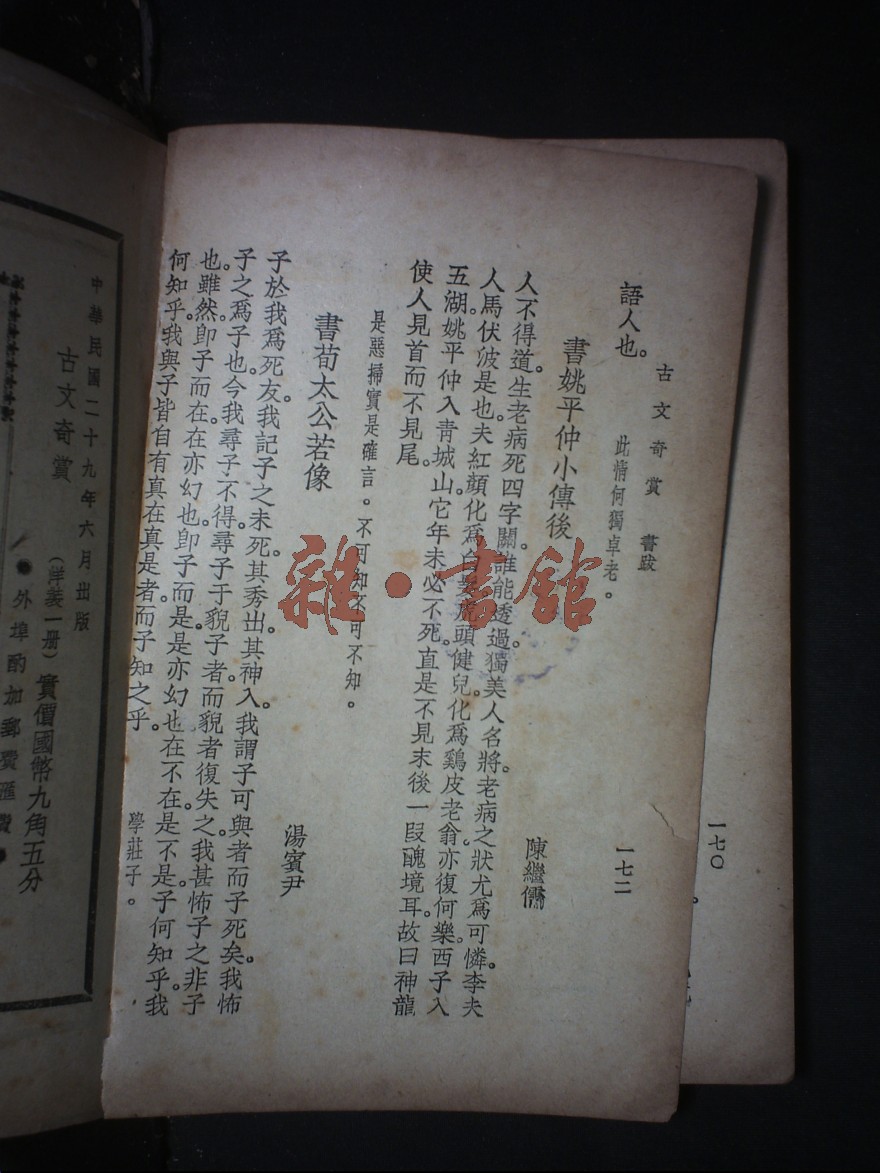 古文奇賞 書跋
一七二
語人也。
此情何獨卓老。
書姚平仲小傳後
陳繼儒
人不得道。生老病死四字關。誰能透過。獨美人名將。老病之狀。尤爲可憐。李夫
人馬伏波是也。夫紅顏化爲白髮。虎頭健兒。化爲鷄皮老翁。亦復何樂。西子入
五湖。姚平仲入青城山。它年未必不死。直是不見末後一段醜境耳。故曰神龍
使人見首而不見尾。
是惡掃實是確言。不可知不可不知。
書荀太公若像
湯賓尹
子於我爲死友。我記子之未死。其秀出。其神入。我謂子可與者。而子死矣。我怖
子之爲子也。今我尋子不得。尋子于貌子者。而貌者復失之。我甚怖子之非子
也。雖然。卽子而在。在亦幻也。卽子而是。是亦幻也。在不在。是不是。子何知乎。我
何知乎。我與子皆自有眞在眞是者。而子知之乎。
學莊子。
一七〇
中華民國二十九年六月出版
古文奇賞
(洋裝一册)實價國幣九角五分
外埠酌加郵費匯費
雜·書館